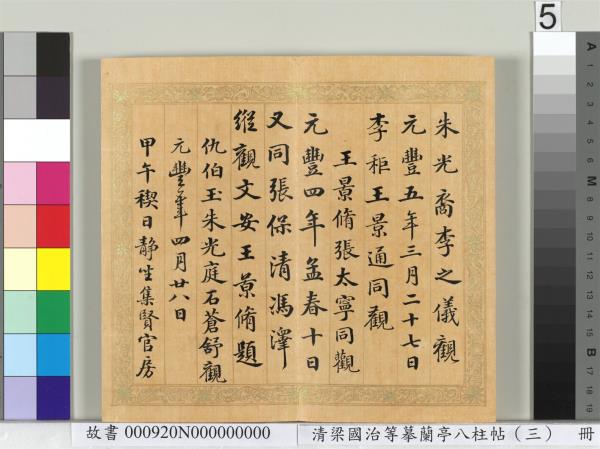 5
朱光裔李之儀觀
元豐五年三月二十七日
李秬王景通同觀
王景脩張太寧同觀
元豐四年孟春十日
又同張保清馮澤
縱觀文安王景脩題
仇伯玉朱光庭石蒼舒觀
元豐年四月廿八日
甲午禊日静坐集賢官房
故書 000920N000000000 清梁國治等摹蘭亭八柱帖（三） 冊